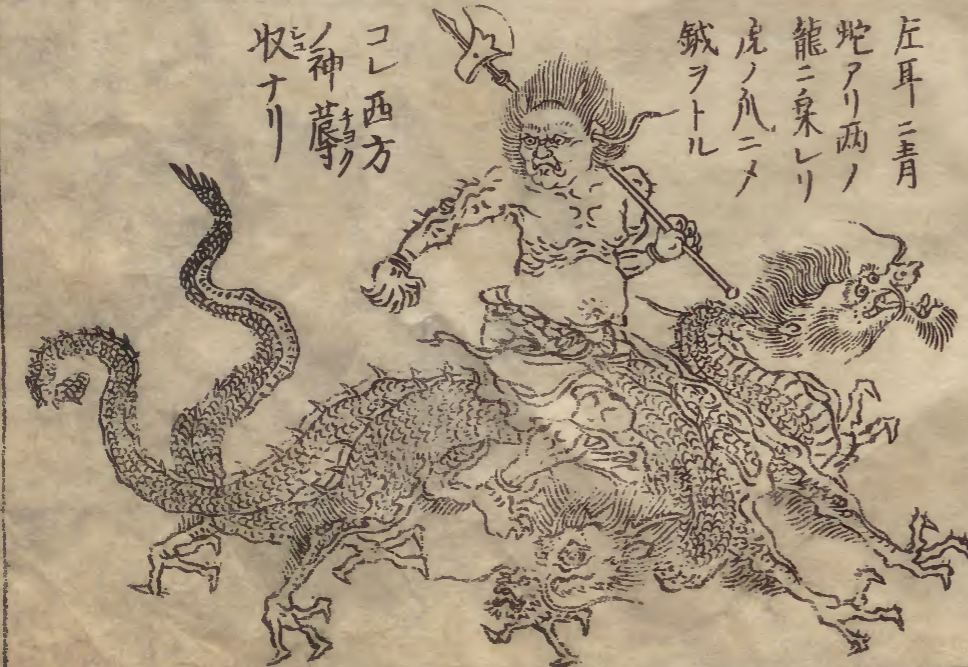 左耳ニ青
蛇アリ両ノ
龍ニ乗レリ
虎ノ爪ニメ
鉞ヲトル
コレ西方
ノ神蓐チヨク
收シユナリ